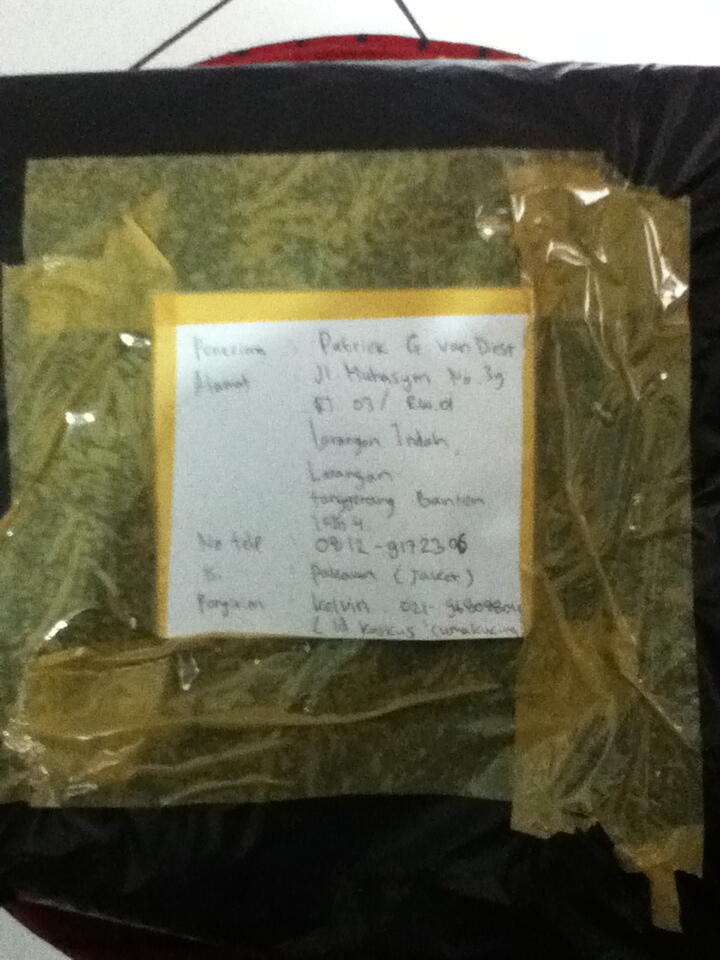 Penerima : Patrick G van Diest
Alamat : Jl Mutasym No. 39
RT 03 / RW.01
Larangan Indah,
Larangan
tanggerang Banten
No telp : 0812-9172306
Isi : Pakaian (Jaket)
Pengirim : kelvin 021-
( id kaskus